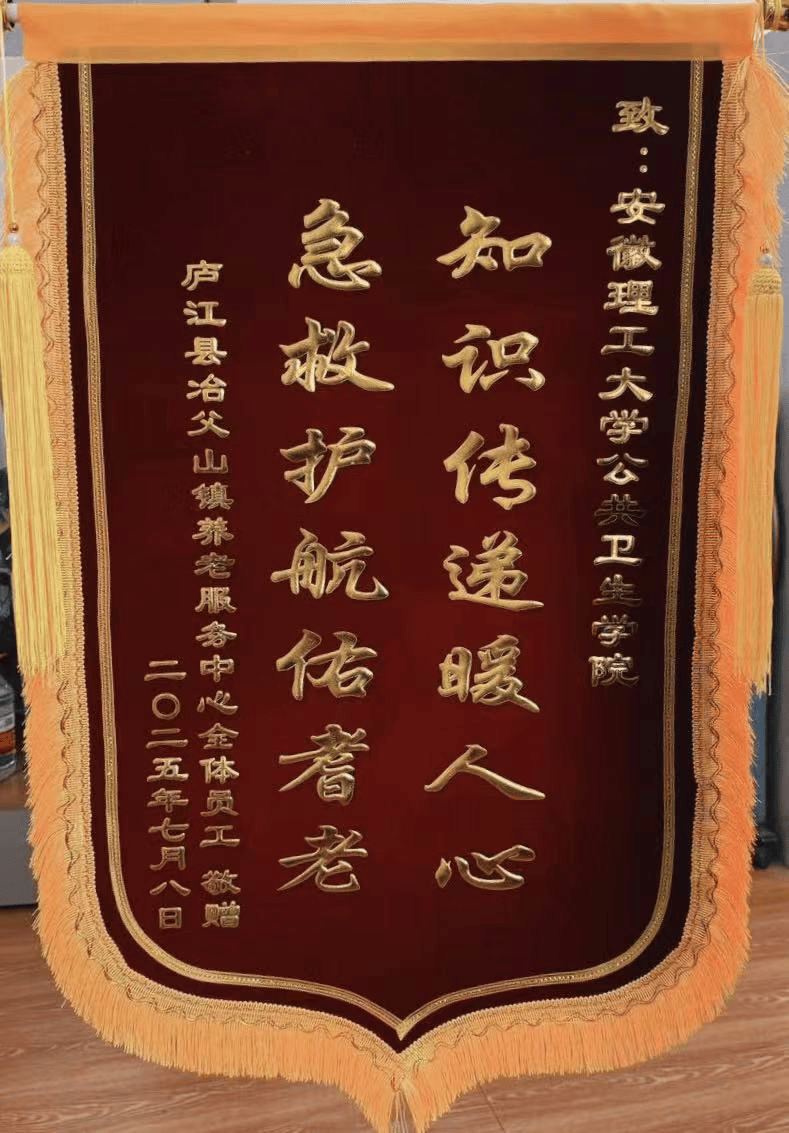 致：安徽理工大学公共卫生学院
知识传递暖人心
急救护航佑耆老
庐江县冶父山镇养老服务中心全体员工 敬赠
二〇二五年七月八日